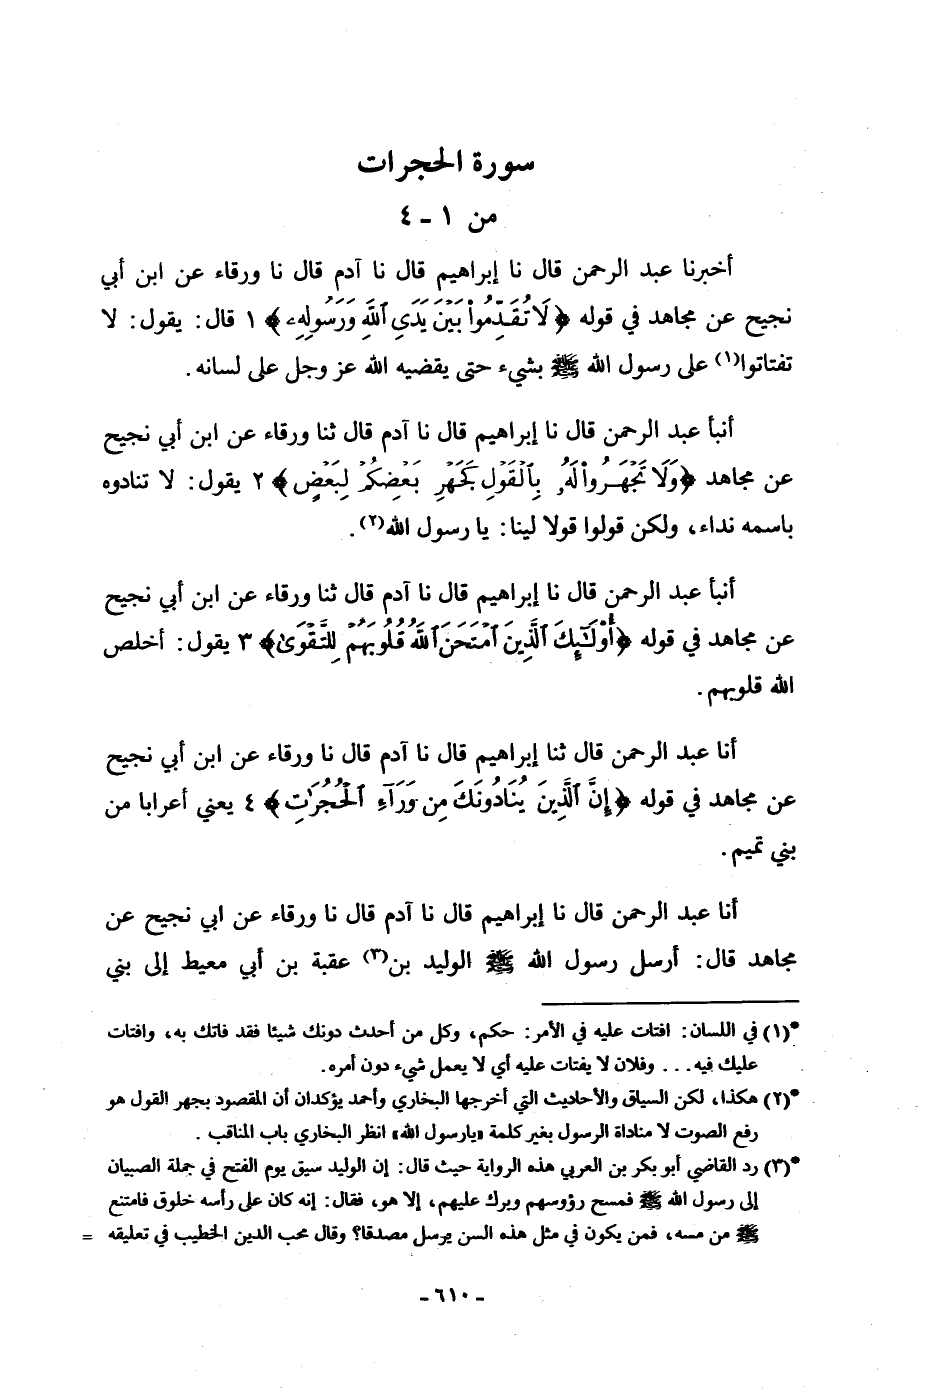 سورة الحجرات
من ١ - ٤
أخبرنا عبد الرحمن قال نا إبراهيم قال نا آدم قال نا ورقاء عن ابن أبي
نجيح عن مجاهد في قوله ﴿لَا تُقَدِّمُواْ بَيْنَ يَدَيِ ٱللَّهِ وَرَسُولِهِۦ﴾ ١ قال: يقول: لا
تفتاتوا(١) على رسول الله ﷺ بشيء حتى يقضيه الله عز وجل على لسانه.
أنبأ عبد الرحمن قال نا إبراهيم قال نا آدم قال ثنا ورقاء عن ابن أبي نجيح
عن مجاهد ﴿وَلَا تَجْهَرُواْ لَهُۥ بِٱلْقَوْلِ كَجَهْرِ بَعْضِكُمْ لِبَعْضٍ﴾ ٢ يقول: لا تنادوه
باسمه نداء، ولكن قولوا قولا لينا: يا رسول الله(٢).
أنبأ عبد الرحمن قال نا إبراهيم قال نا آدم قال ثنا ورقاء عن ابن أبي نجيح
عن مجاهد في قوله ﴿أُوْلَٰٓئِكَ ٱلَّذِينَ ٱمْتَحَنَ ٱللَّهُ قُلُوبَهُمْ لِلتَّقْوَىٰ﴾ ٣ يقول: أخلص
الله قلوبهم.
أنا عبد الرحمن قال ثنا إبراهيم قال نا آدم قال نا ورقاء عن ابن أبي نجيح
عن مجاهد في قوله ﴿إِنَّ ٱلَّذِينَ يُنَادُونَكَ مِن وَرَآءِ ٱلْحُجُرَٰتِ﴾ ٤ يعني أعرابا من
بني تميم.
أنا عبد الرحمن قال نا إبراهيم قال نا آدم قال نا ورقاء عن ابي نجيح عن
مجاهد قال: أرسل رسول الله ﷺ الوليد بن(٣) عقبة بن أبي معيط إلى بني
*(١) في اللسان: افتات عليه في الأمر: حكم، وكل من أحدث دونك شيئا فقد فاتك به، وافتات
عليك فيه... وفلان لا يفتات عليه أي لا يعمل شيء دون أمره.
*(٢) هكذا، لكن السياق والأحاديث التي أخرجها البخاري وأحمد يؤكدان أن المقصود بجهر القول هو
رفع الصوت لا مناداة الرسول بغير كلمة «يارسول الله» انظر البخاري باب المناقب .
*(٣) رد القاضي أبو بكر بن العربي هذه الرواية حيث قال: إن الوليد سيق يوم الفتح في جملة الصبيان
إلى رسول الله ﷺ فمسح رؤوسهم وبرك عليهم، إلا هو، فقال: إنه كان على رأسه خلوق فامتنع
ﷺ من مسه، فمن يكون في مثل هذه السن يرسل مصدقا؟ وقال محب الدين الخطيب في تعليقه =
- ٦١٠ -